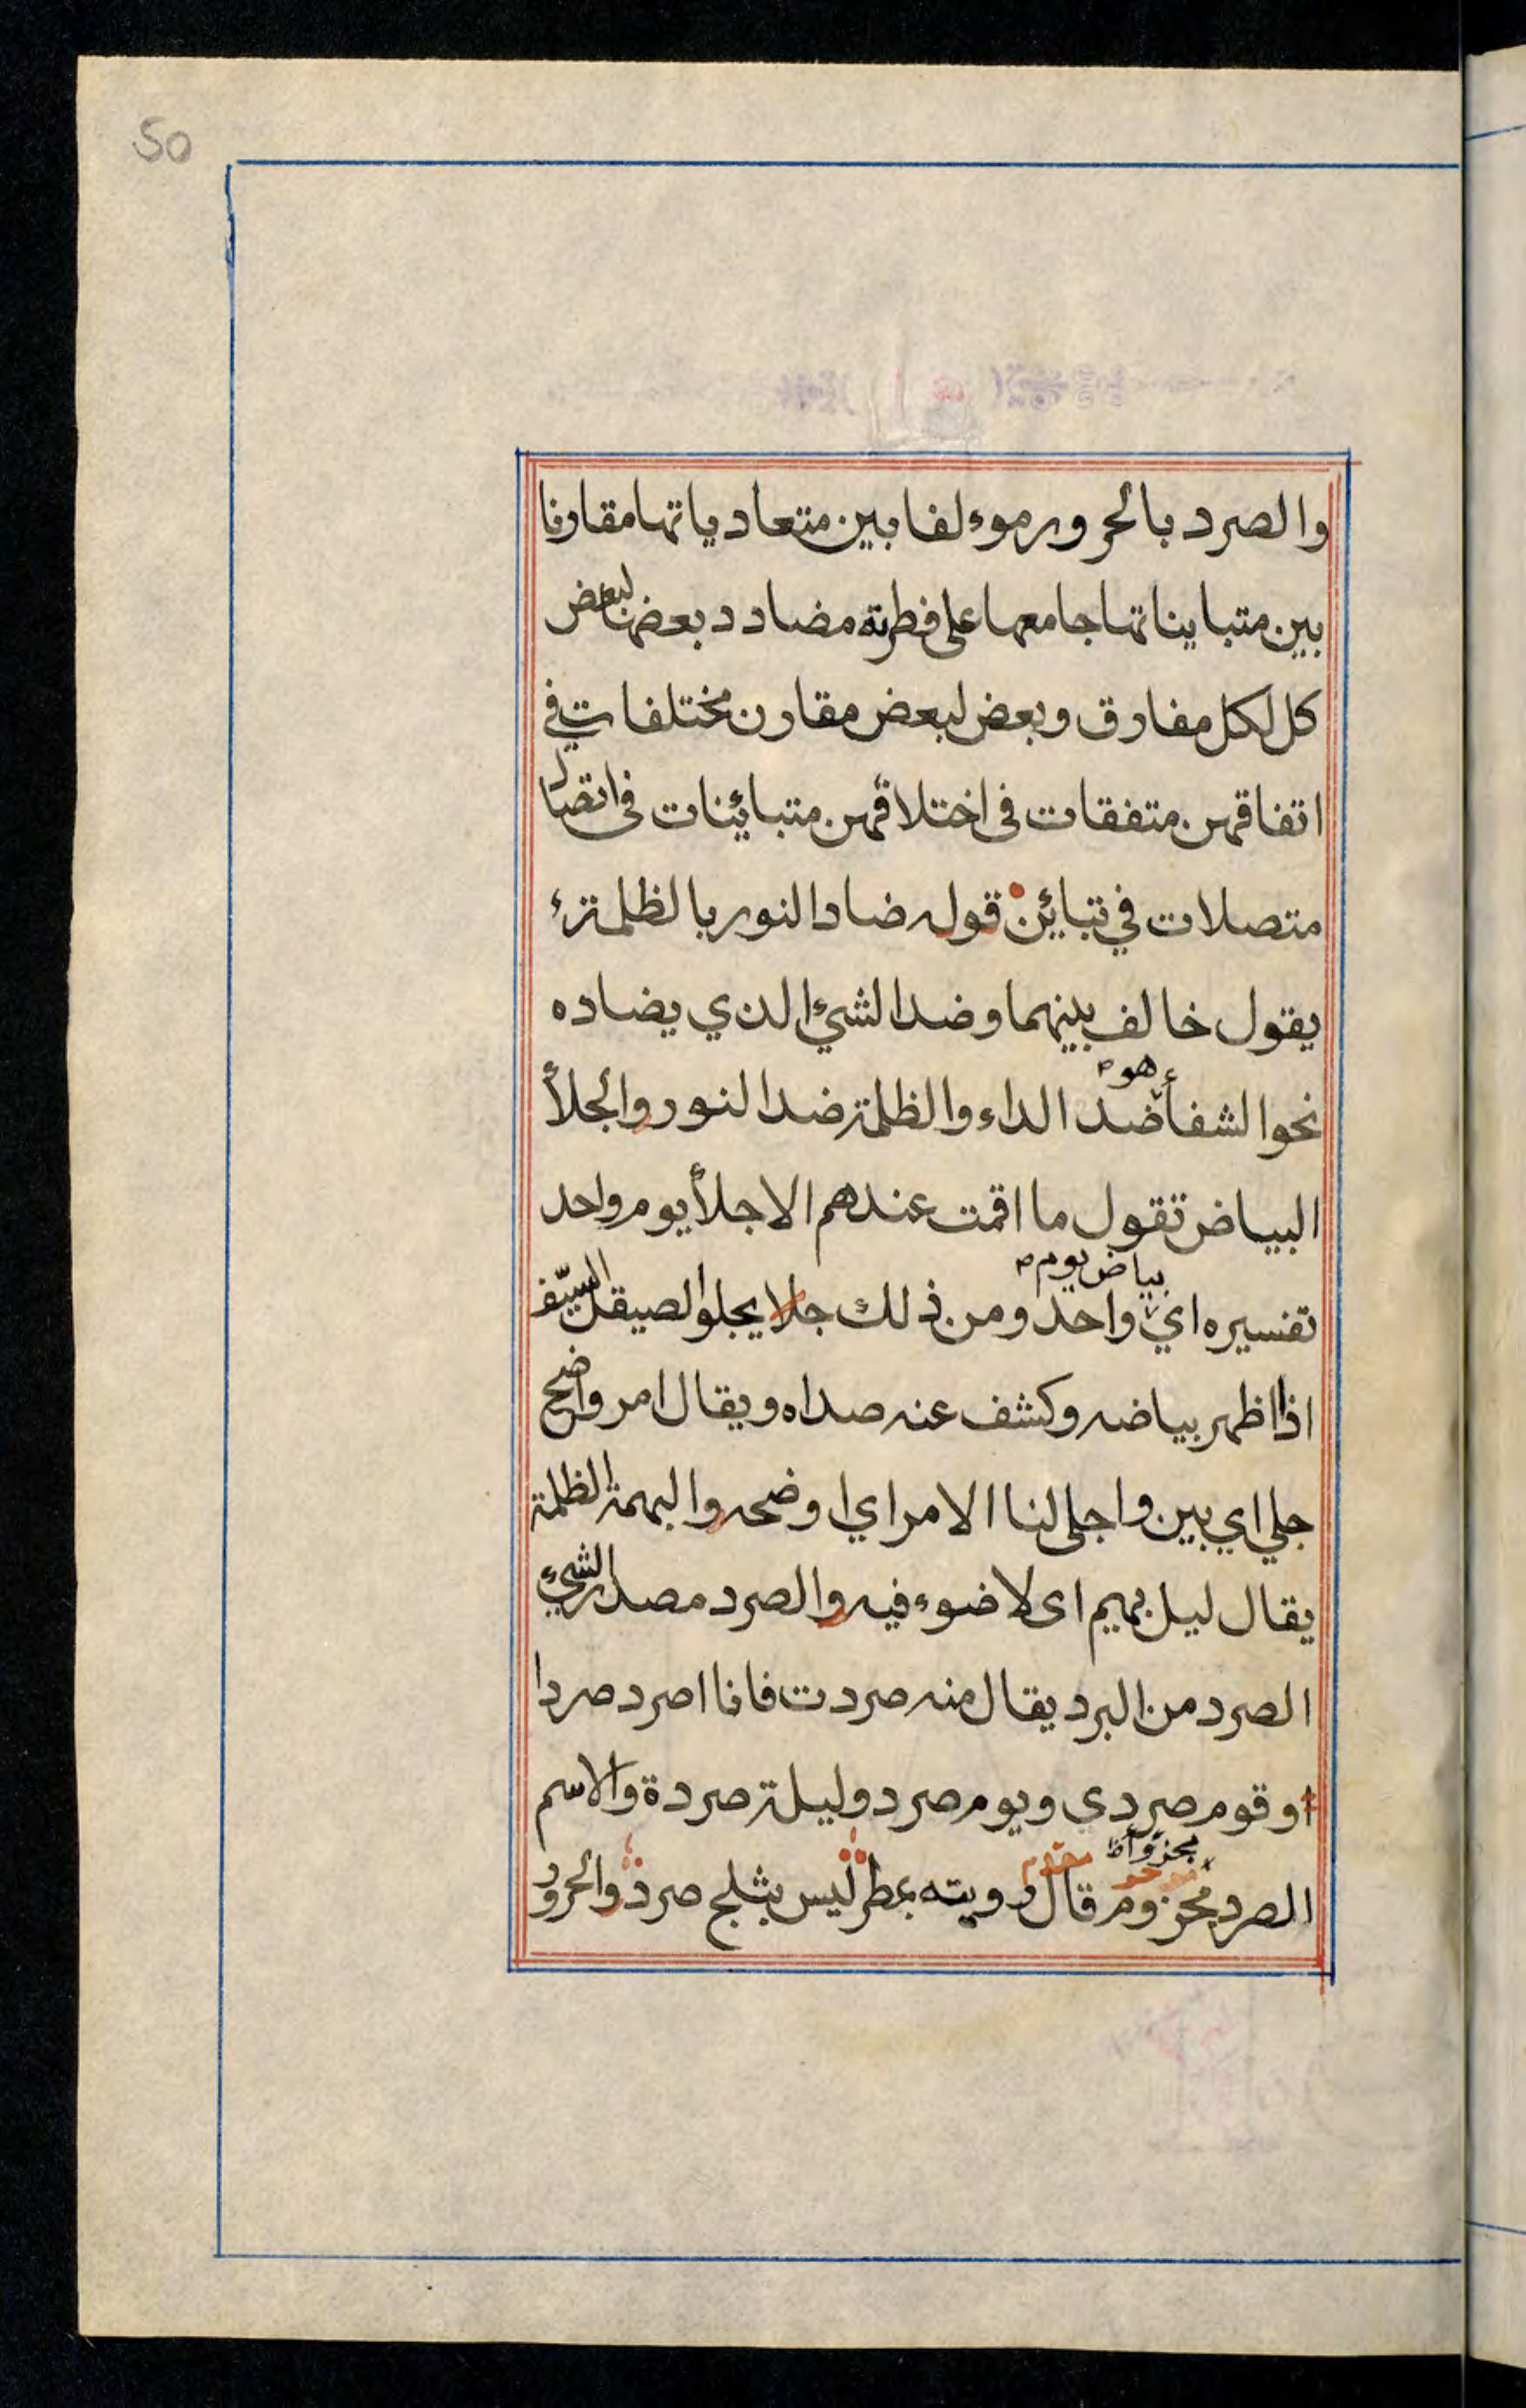 50
والصرد بالحرور موءلفا بين متعادياتها مقارنا
بين متبايناتها جامعها على فطرته مضادد بعضها لبعض
كل لكل مفارق وبعض لبعض مقارن مختلفات في
اتفاقهن متفقات فى اختلاقهن متبائينات فى اتصال
متصلات في تبائين قوله ضاد النور بالظلمة
يقول خالف بينهما وضد الشيء الدي يضاده
هو
نحوا لشفأ ضد الداء والظلمة ضد النور والجلأ
البياض تقول ما اقمت عندهم الا جلأ يوم واحد
بياض يوم
تفسيره اي واحد ومن ذلك جلا يجلوا الصيقل السيف
اذا اظهر بياضه وكشف عنه صداه ويقال امر واضح
جلي اي بين واجلى لنا الامر اي اوضحه والبهمة الظلمة
يقال ليل بهيم اى لا ضوء فيه والصرد مصدر الشيء
الصرد من البرد يقال منه صردت فانا اصرد صردا
وقوم صردي ويوم صرد وليلة صردة والاسم
الصرد مجزوم قال رويته بمطر ليس بثلج صرد والحرور